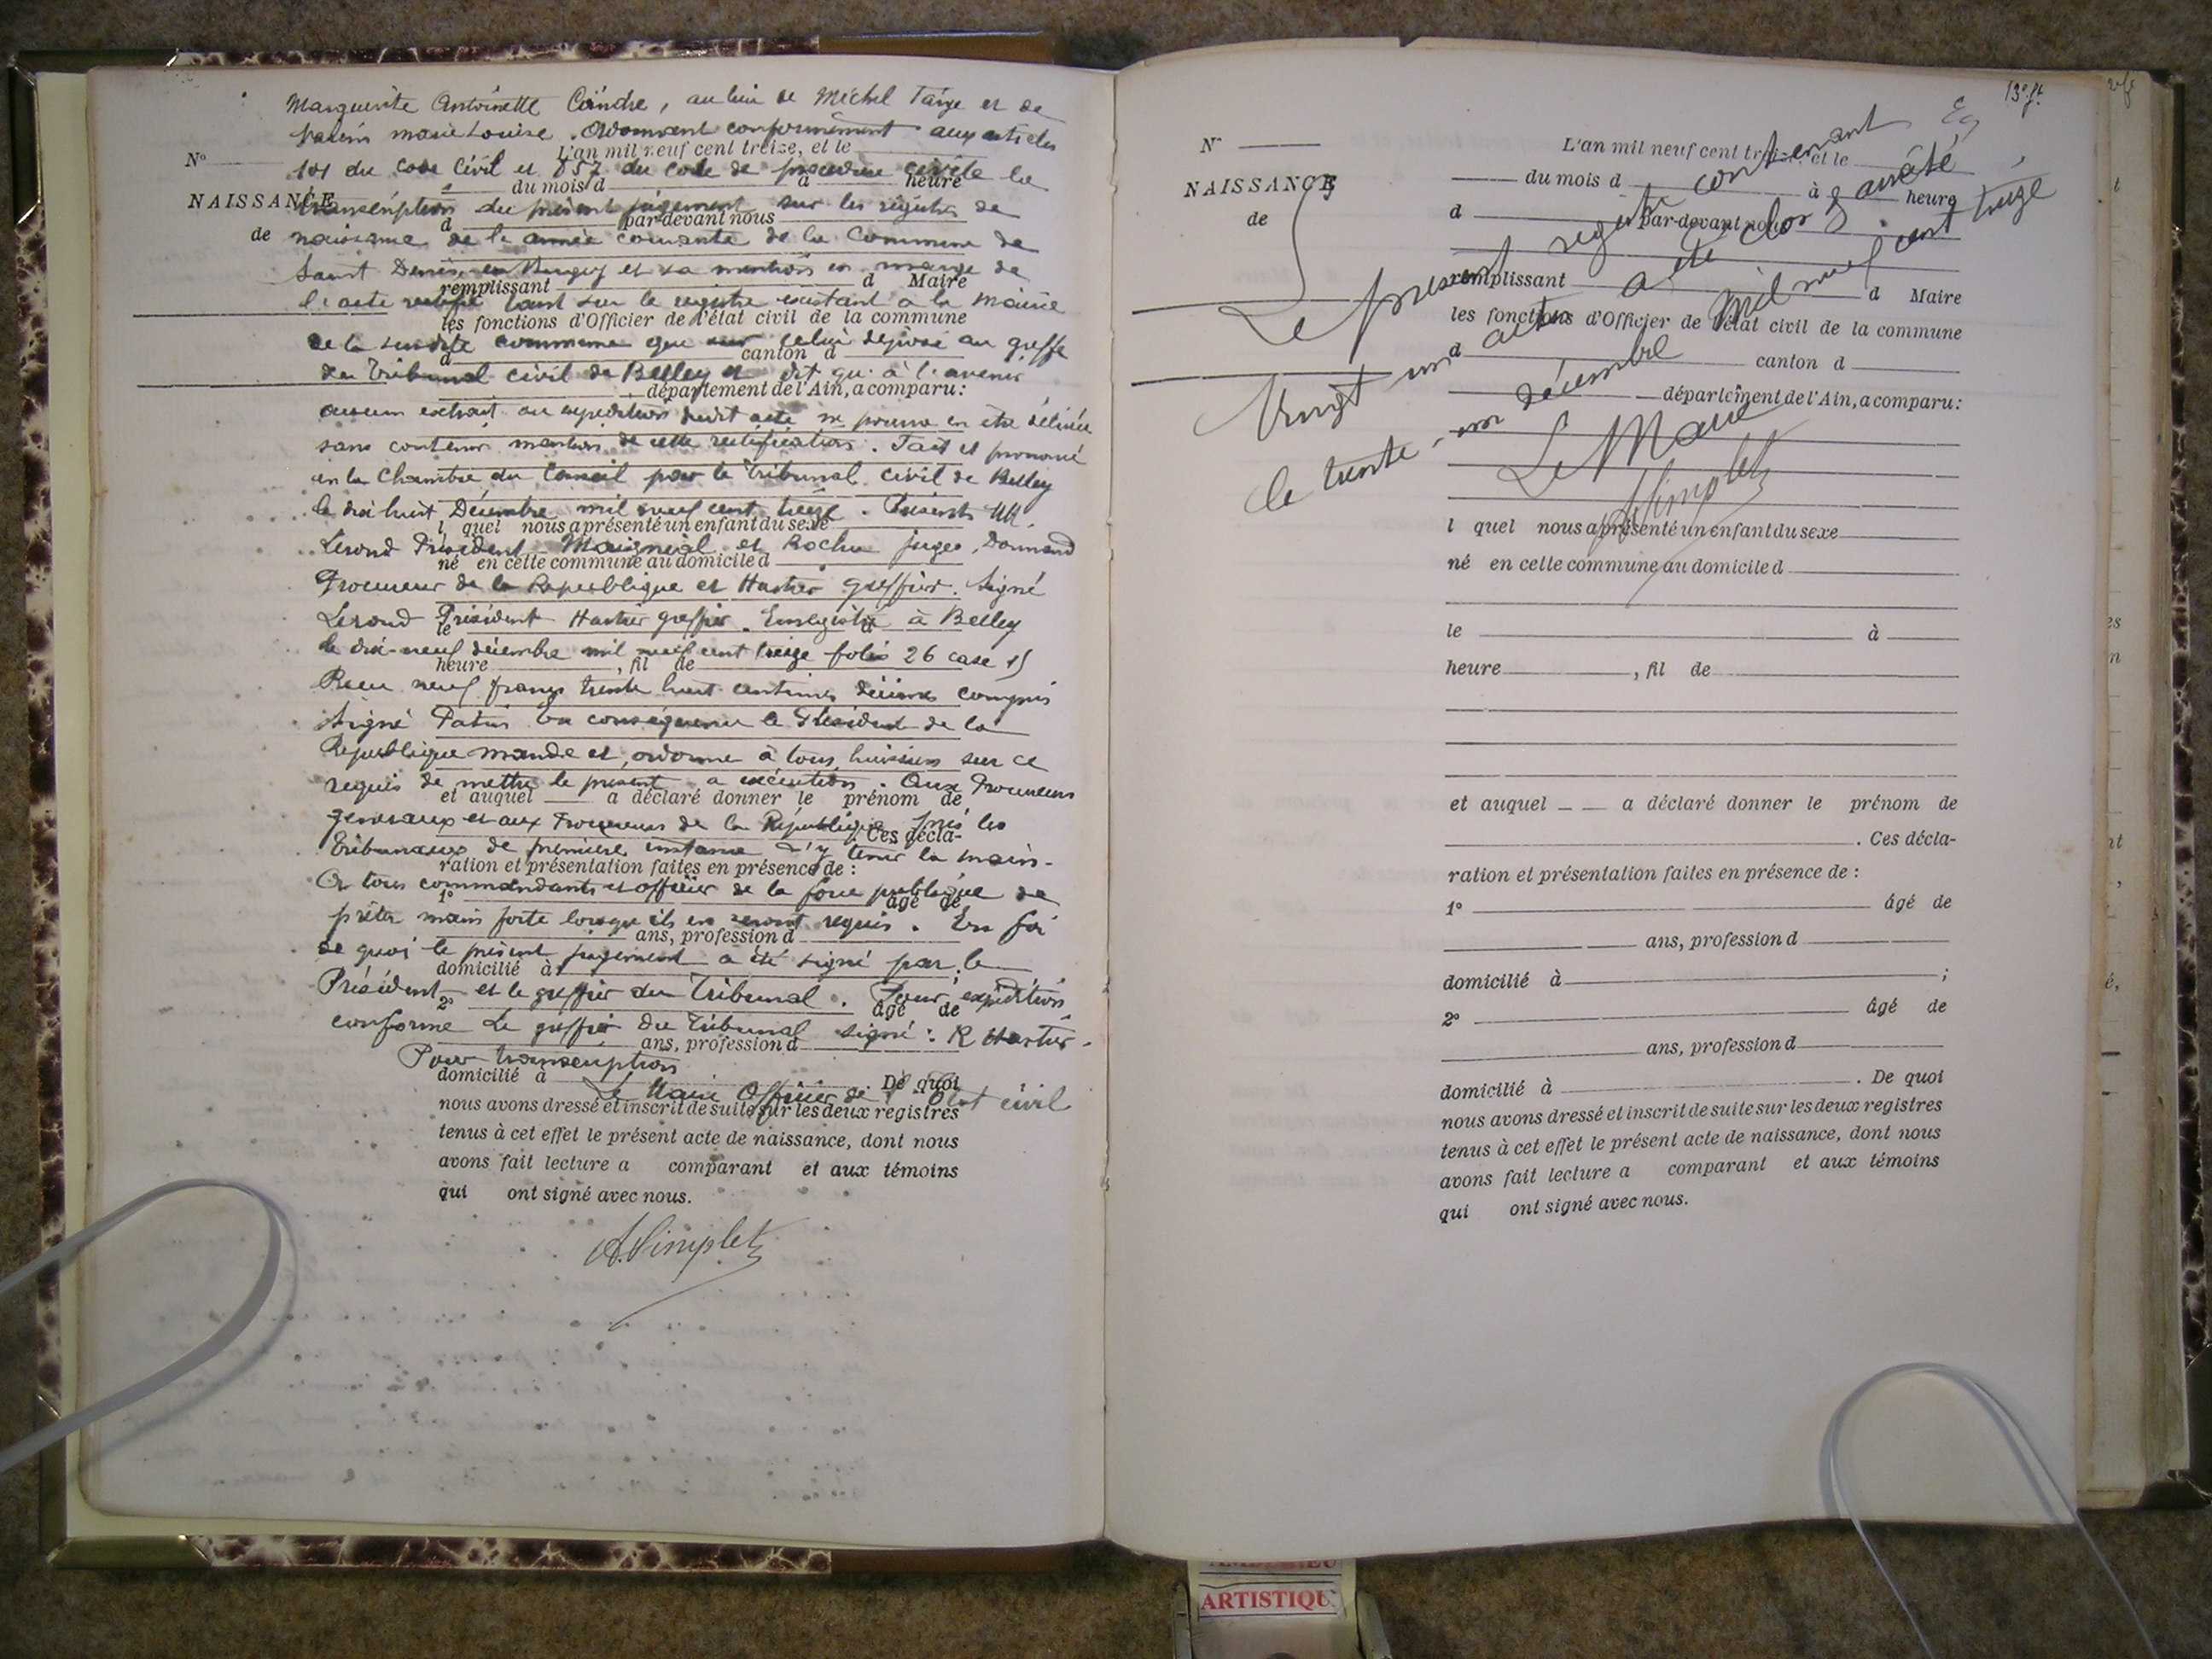 Marguerite Antoinette Coindre, au lieu de Michel Taige et de
marie Louise. Ordonnent conformément aux articles
L'an mil neuf cent treize, et le
N°
101 du Code Civil et 857 du code de procédure civile la
du mois d à heure
NAISSANCE
transcription du présent jugement sur les registres de
d par-devant nous
de
naissance de l'année courante de la Commune de
Saint Denis en Bugey et sa mention en marge de
remplissant d Maire
l'acte rectifié tant sur le registre existant a la mairie
les fonctions d'Officier de l'état civil de la commune
de la susdite commune que sur celui déposé au greffe
d canton d
du Tribunal civil de Belley et dit qu'à l'avenir
département de l'Ain, a comparu :
aucun extrait ou expédition dudit acte ne pourra en être délivré
sans contenir mention de cette rectification. Fait et prononcé
en la Chambre du Conseil par le Tribunal civil de Belley
le dix huit Décembre mil neuf cent treize. Présents MM.
l quel nous a présenté un enfant du sexe
Lerond Président et Roche juges, Donnand
né en cette commune au domicile d
Procureur de la République et Hartier greffier. Signé
Lerond Président Hartier greffier. Enregistré à Belley
le à
le dix-neuf décembre mil neuf cent treize folio 26 case 15
heure , fil de
Reçu neuf francs trente huit centimes décimes compris
Signé Patin En conséquence le Président de la
République mande et ordonne à tous huissiers sur ce
requis de mettre le present a exécution. Aux Procureurs
et auquel a déclaré donner le prénom de
généraux et aux Procureurs de la République près les
. Ces décla-
Tribunaux de première instance d'y tenir la main-
ration et présentation faites en présence de :
A tous commandants et officier de la force publique de
1° âgé de
prêter main forte lorsqu'ils en seront requis. En foi
ans, profession d
de quoi le présent jugement a été signé par le
domicilié à ;
Président et le greffier du Tribunal. Pour expédition
2° âgé de
conforme Le greffier du Tribunal signé : R Hartier.
ans, profession d
Pour transcription
domicilié à . De quoi
Le Maire Officier de l'Etat civil
nous avons dressé et inscrit de suite sur les deux registres
tenus à cet effet le présent acte de naissance, dont nous
avons fait lecture a comparant et aux témoins
qui ont signé avec nous.
A. Simplet
13e ft
N°
L'an mil neuf cent treize, et le
NAISSANCE
du mois d à heure
de
d par-devant nous
remplissant d Maire
les fonctions d'Officier de l'état civil de la commune
d canton d
département de l'Ain, a comparu :
Le présent registre contenant
Vingt un actes a été clos & arrêté
le trente-un décembre mil neuf cent treize
Le Maire
A. Simplet
l quel nous a présenté un enfant du sexe
né en cette commune au domicile d
le à
heure , fil de
et auquel a déclaré donner le prénom de
. Ces décla-
ration et présentation faites en présence de :
1° âgé de
ans, profession d
domicilié à ;
2° âgé de
ans, profession d
domicilié à . De quoi
nous avons dressé et inscrit de suite sur les deux registres
tenus à cet effet le présent acte de naissance, dont nous
avons fait lecture a comparant et aux témoins
qui ont signé avec nous.
ARTISTIQU